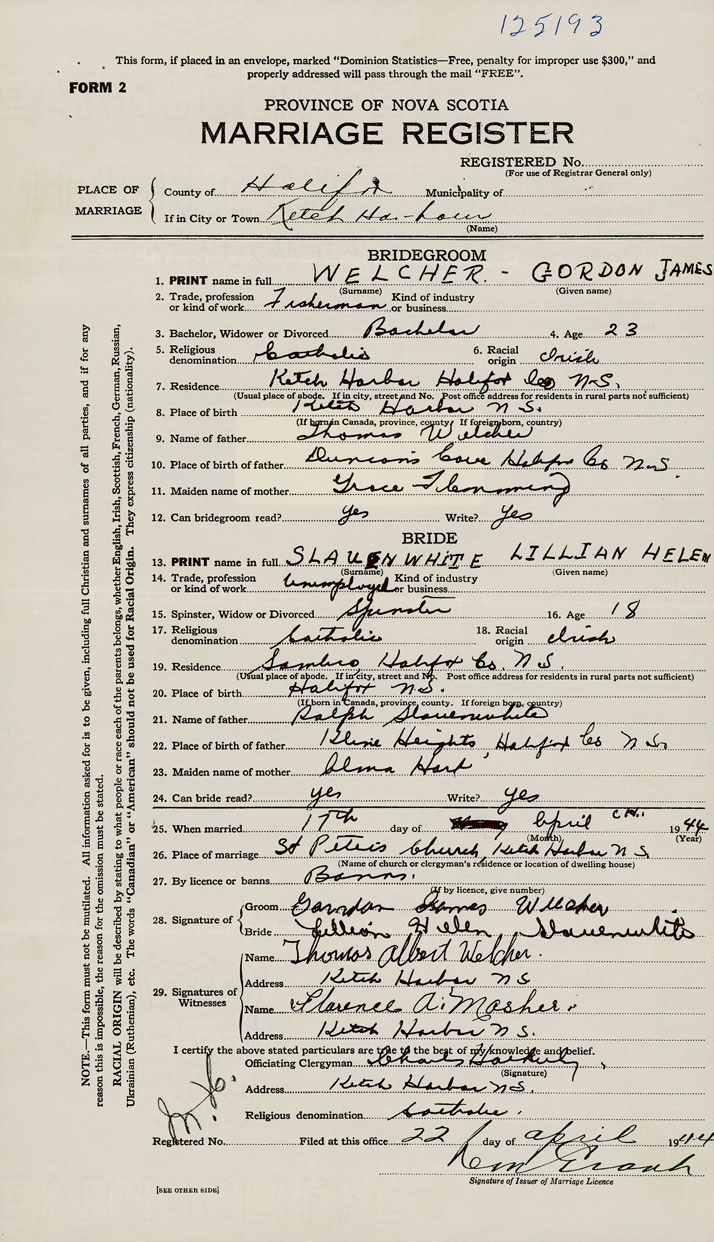 125193
This form, if placed in an envelope, marked "Dominion Statistics—Free, penalty for improper use $300," and
properly addressed will pass through the mail "FREE".
FORM 2
PROVINCE OF NOVA SCOTIA
MARRIAGE REGISTER
REGISTERED No.
(For use of Registrar General only)
PLACE OF MARRIAGE
County of Halifax Municipality of
If in City or Town Ketch Harbour
(Name)
BRIDEGROOM
1. PRINT name in full WELCHER - GORDON JAMES
(Surname) (Given name)
2. Trade, profession or kind of work Fisherman Kind of industry or business
3. Bachelor, Widower or Divorced Bachelor 4. Age 23
5. Religious denomination Catholic 6. Racial origin Irish
7. Residence Ketch Harbor Halifax Co N.S.
(Usual place of abode. If in city, street and No. Post office address for residents in rural parts not sufficient)
8. Place of birth Ketch Harbor N.S.
(If born in Canada, province, county. If foreign born, country)
9. Name of father Thomas Welcher
10. Place of birth of father Duncan's Cove Halifax Co N.S
11. Maiden name of mother Grace Flemming
12. Can bridegroom read? yes Write? yes
BRIDE
13. PRINT name in full SLAUENWHITE LILLIAN HELEN
(Surname) (Given name)
14. Trade, profession or kind of work Unemployed Kind of industry or business
15. Spinster, Widow or Divorced Spinster 16. Age 18
17. Religious denomination Catholic 18. Racial origin Irish
19. Residence Sambro, Halifax Co. N.S.
(Usual place of abode. If in city, street and No. Post office address for residents in rural parts not sufficient)
20. Place of birth Halifax N.S.
(If born in Canada, province, county. If foreign born, country)
21. Name of father Ralph Slauenwhite
22. Place of birth of father Kline Heights, Halifax Co N.S.
23. Maiden name of mother Alma Hart
24. Can bride read? yes Write? yes
25. When married 17th day of April C.H. 1944
(Month) (Year)
26. Place of marriage St Peters Church, Ketch Harbor N S
(Name of church or clergyman's residence or location of dwelling house)
27. By licence or banns Banns.
(If by licence, give number)
28. Signature of
Groom Gordon James Welcher
Bride Lillian Helen Slauenwhite
29. Signatures of Witnesses
Name Thomas Albert Welcher.
Address Ketch Harbor N S
Name Florence A. Mosher.
Address Ketch Harbor N.S.
I certify the above stated particulars are true to the best of my knowledge and belief.
Officiating Clergyman Charles
(Signature)
Address Ketch Harbor N.S.
Religious denomination Catholic.
Registered No. Filed at this office 22 day of April 1944
Signature of Issuer of Marriage Licence
[SEE OTHER SIDE]
NOTE.—This form must not be mutilated. All information asked for is to be given, including full Christian and surnames of all parties, and if for any
reason this is impossible, the reason for the omission must be stated.
RACIAL ORIGIN will be described by stating to what people or race each of the parents belongs, whether English, Irish, Scottish, French, German, Russian,
Ukrainian (Ruthenian), etc. The words "Canadian" or "American" should not be used for Racial Origin. They express citizenship (nationality).